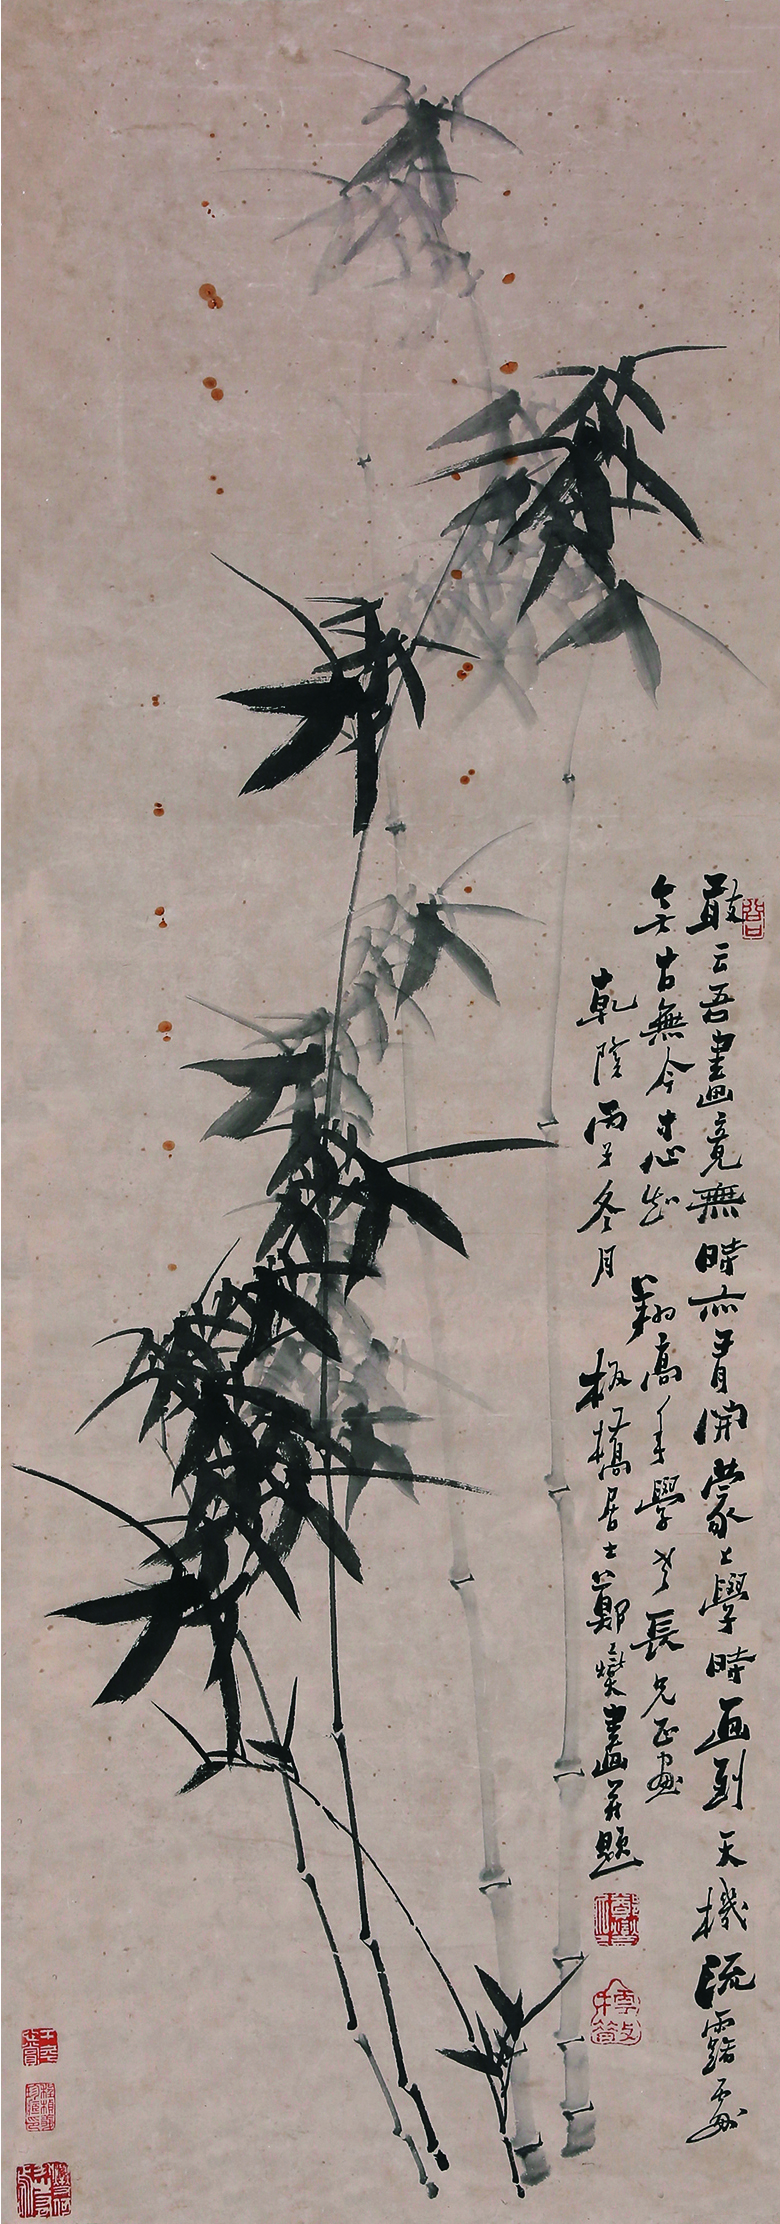 敢云吾畫竟無時亦有開蒙上學時画到天機流露處
無古無今寸心知 翔高年學老長兄正画
乾隆丙子冬月 板橋居士鄭燮畫并題